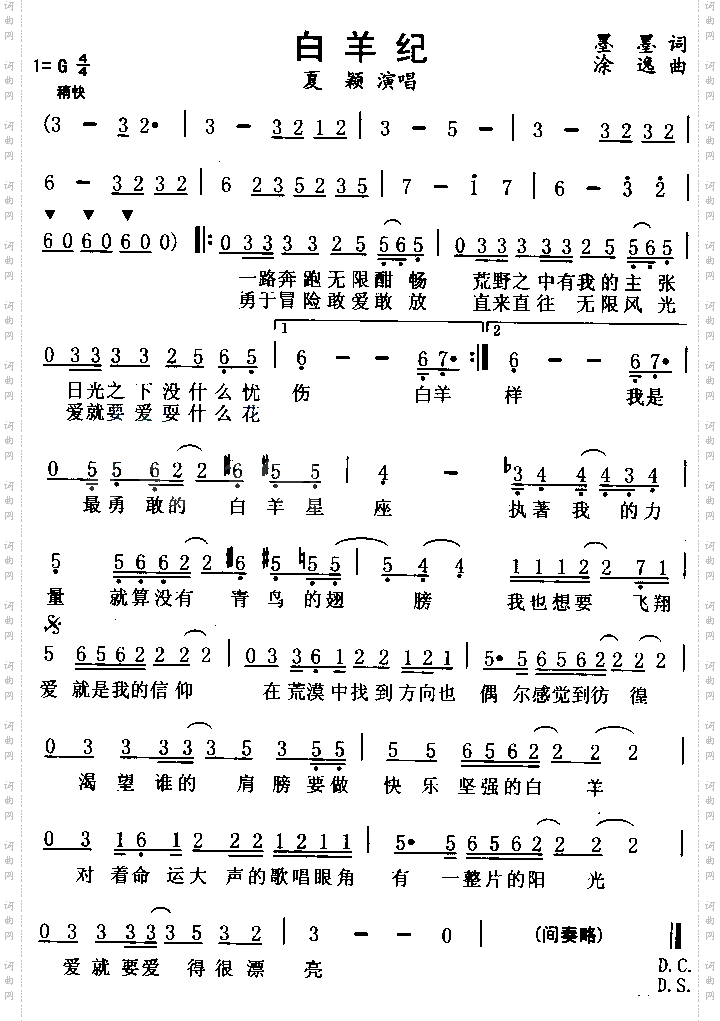 白羊纪
墨 墨 词
涂 逸 曲
1= G 4/4
稍快
夏 颖 演唱
(3 - 32· | 3 - 3212 | 3 - 5 - | 3 - 3232 |
6 - 3232 | 6 235235 | 7 - 1 7 | 6 - 3 2 |
6060600 0) 𝄆 033 3 325 565 | 033 333 325 565 |
一路奔跑无限酣畅 荒野之中有我的主张
勇于冒险敢爱敢放 直来直往 无限风光
1 2
0333 3325 65 | 6 - - 67· :‖ 6 - - 67· |
日光之下没什么忧 伤 白羊 样 我是
爱就要爱耍什么花
0 5 5 6 2 2 #6 #5 5 | 4 - b3 4 4 4 3 4 |
最勇敢的 白羊星 座 执著我 的力
5 5 6 6 2 2 2 #6 #5 b5 5 | 5 4 4 1 1 1 2 2 2 7 1 |
量 就算没有 青鸟的翅 膀 我也想要 飞翔
5 6562 2 2 2 | 03 361 22 121 | 5· 5 6562 2 2 2 |
爱 就是我的信仰 在荒漠中找到方向也 偶尔感觉到彷 徨
0 3 3 3 3 3 5 3 5 5 | 5 5 6562 2 2 2 |
渴望谁的 肩膀要做 快乐 坚强的白 羊
0 3 161 2 221211 | 5· 5 6562 2 2 2 |
对着命运大声的歌唱眼角 有 一整片的阳 光
0 3 3 3 3 3 5 3 2 | 3 - - 0 ‖ (间奏略) ‖
爱就要爱 得很漂 亮
D.C.
D.S.
词曲网